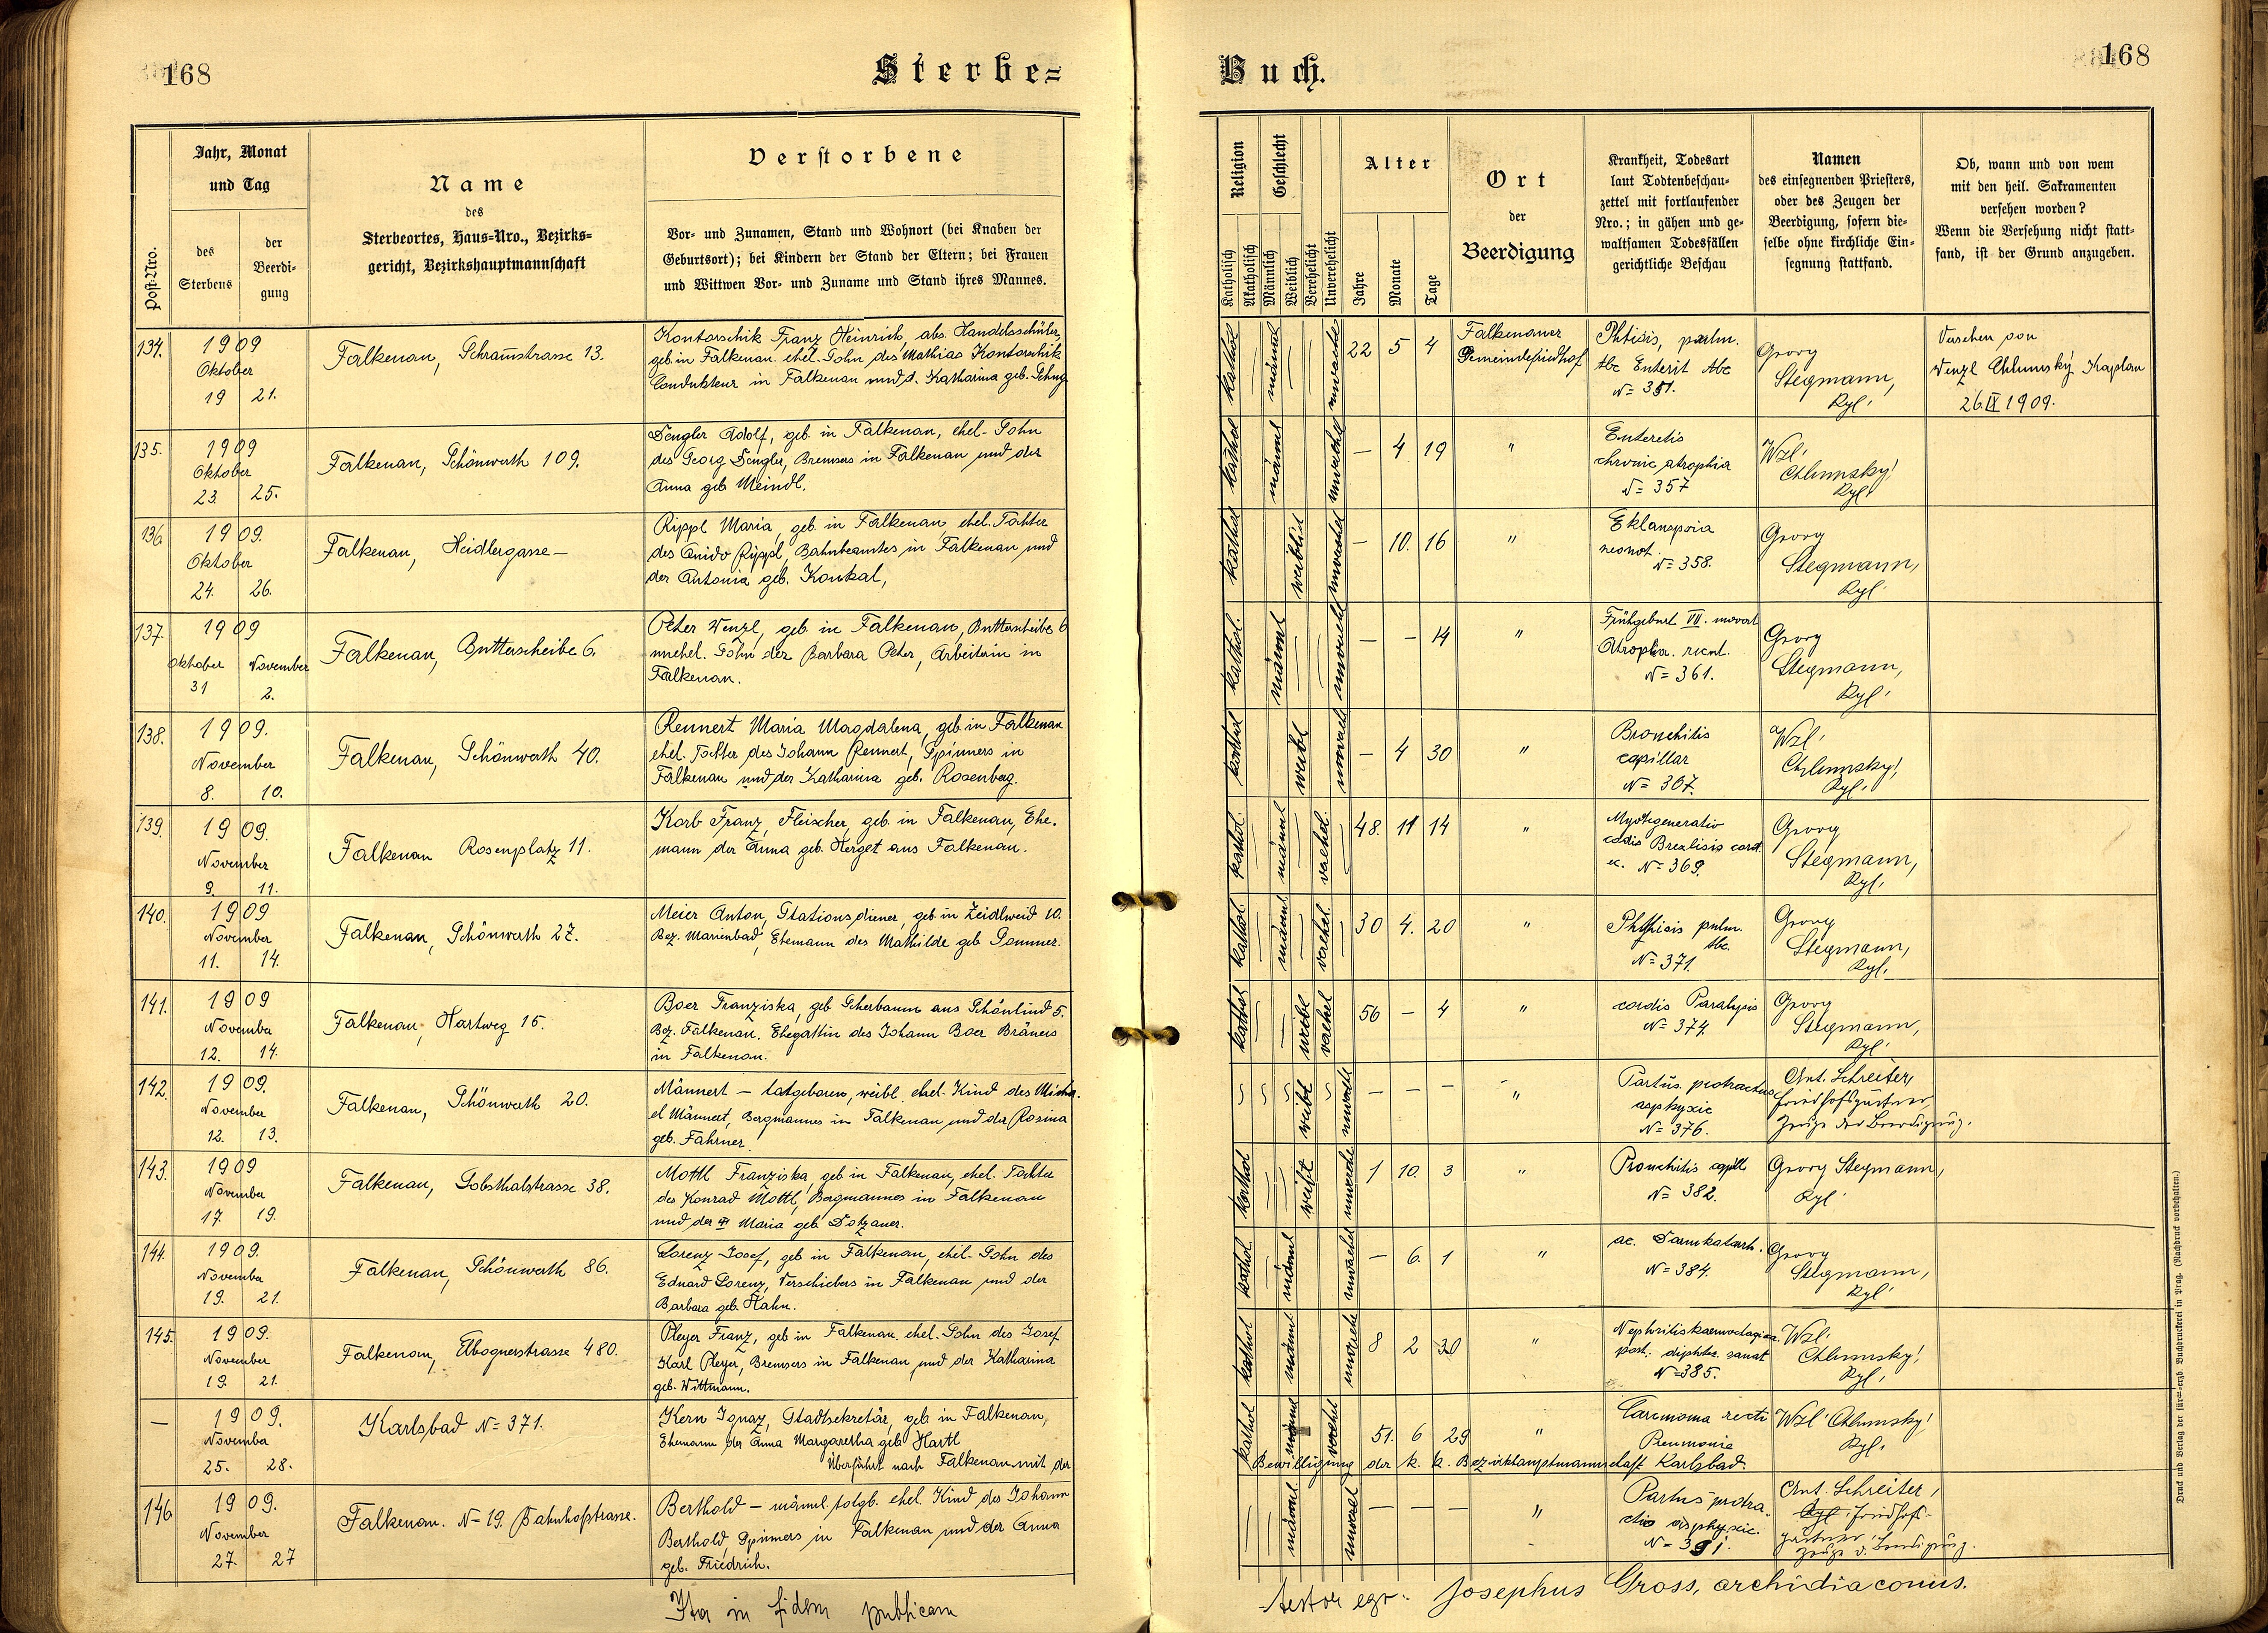 168
Sterbe=
Buch.
168
Post-Nro.
Jahr, Monat
und Tag
des
Sterbens
der
Beerdi-
gung
Name
des
Sterbeortes, Haus-Nro., Bezirks=
gericht, Bezirkshauptmannschaft
Verstorbene
Vor- und Zunamen, Stand und Wohnort (bei Knaben der
Geburtsort); bei Kindern der Stand der Eltern; bei Frauen
und Wittwen Vor- und Zuname und Stand ihres Mannes.
Religion
Katholisch
Akatholisch
Geschlecht
Männlich
Weiblich
Verehelicht
Unverehelicht
Alter
Jahre
Monate
Tage
Ort
der
Beerdigung
Krankheit, Todesart
laut Todtenbeschau-
zettel mit fortlaufender
Nro.; in gähen und ge-
waltsamen Todesfällen
gerichtliche Beschau
Namen
des einsegnenden Priesters,
oder des Zeugen der
Beerdigung, sofern die-
selbe ohne kirchliche Ein-
segnung stattfand.
Ob, wann und von wem
mit den heil. Sakramenten
versehen worden?
Wenn die Versehung nicht statt-
fand, ist der Grund anzugeben.
134.
1909
Oktober
19 21.
Falkenau, Schramstrasse 13.
Kontorschik Franz Heinrich, abs. Handelsschüler,
geb in Falkenau. ehel. Sohn des Mathias Kontorschik
Condukteur in Falkenau und d. Katharina geb.
kathol
männl
22 5 4
Falkenauer
Gemeindefriedhof
Phtisis, pulm.
tbc Enterit tbc
N= 351.
Georg
Stegmann,
Kpl.
Versehen von
Wenzl Chlumský Kaplan
26.IX 1909.
135.
1909
Oktober
23. 25.
Falkenau, Schönwerth 109.
Dengler Adolf, geb. in Falkenau, ehel. Sohn
des Georg Dengler, Bremsers in Falkenau und der
Anna geb Meindl.
kathol
männl
— 4 19
"
chronic atrophia
N= 357
Wzl.
Chlumsky!
Kpl.
136.
1909.
Oktober
24. 26.
Falkenau, Heidlergasse —
Rippl Maria, geb. in Falkenau ehel. Tochter
des Quido Rippl, Bahnbeamtes in Falkenau und
der Antonia geb. Koukal,
kathol
weiblich
— 10. 16
"
Eklampsia
neonat.
N= 358.
Georg
Stegmann,
Kpl.
137.
1909
Oktober November
31 2.
Falkenau, Butterscheibe 6.
Peter Wenzl, geb. in Falkenau, Butterscheibe 6
unehel. Sohn der Barbara Peter, Arbeiterin in
Falkenau.
kathol.
männl
— — 14
"
Frühgeburt VII. monat
N= 361.
Georg
Stegmann,
Kpl.
138.
1909.
November
8. 10.
Falkenau, Schönwerth 40.
Rennert Maria Magdalena, geb. in Falkenau
ehel. Tochter des Johann Rennert, Spinners in
Falkenau und der Katharina geb. Rosenberg.
kathol
weibl
— 4 30
"
Bronchitis
capillar
N= 367.
Wzl.
Chlumsky!
Kpl.
139.
1909.
November
9. 11.
Falkenau Rosenplatz 11.
Korb Franz, Fleischer, geb. in Falkenau, Ehe-
mann der Anna geb. Herget aus Falkenau.
kathol.
männl
verehel.
48. 11 14
"
N= 369.
Georg
Stegmann,
Kpl.
140.
1909
November
11. 14.
Falkenau, Schönwerth 27.
Meier Anton, Stationsdiener, geb. in Zeidlweid 10.
Bez. Marienbad, Ehemann des Mathilde geb Sommer.
kathol.
männl
verehel.
30 4. 20
"
Phthisis pulm.
tbc.
N= 371.
Georg
Stegmann,
Kpl.
141.
1909
November
12. 14.
Falkenau, Hartweg 15.
Boer Franziska, geb Scherbaum aus Schönlind 5.
Bez. Falkenau. Ehegattin des Johann Boer Bräuers
in Falkenau.
kathol
weibl
verehel
56 — 4
"
cordis Paralysis
N= 374.
Georg
Stegmann,
Kpl.
142.
1909.
November
12. 13.
Falkenau, Schönwerth 20.
Männert — totgeboren, weibl. ehel. Kind des Micha-
el Männert, Bergmannes in Falkenau und der Rosina
geb. Fahrner.
weibl
— — —
"
Partus. protractus
asphyxie
N= 376.
Ant. Schreiter,
Friedhofsgärtner,
Zeuge der Beerdigung.
143.
1909
November
17. 19.
Falkenau, Gobsthalstrasse 38.
Mottl Franziska, geb in Falkenau, ehel. Tochter
des Konrad Mottl, Bergmannes in Falkenau
und der Maria geb. Dotzauer.
kathol
weibl
1 10. 3
"
Bronchitis capill
N= 382.
Georg Stegmann,
Kpl.
144.
1909.
November
19. 21.
Falkenau, Schönwerth 86.
Lorenz Josef, geb in Falkenau, ehel. Sohn des
Eduard Lorenz, Verschiebers in Falkenau und der
Barbara geb. Hahn.
kathol.
männl
— 6. 1
"
ac. Darmkatarrh.
N= 384.
Georg
Stegmann,
Kpl.
145.
1909.
November
19. 21.
Falkenau, Elbognerstrasse 480.
Pleyer Franz, geb in Falkenau. ehel. Sohn des Josef
Karl Pleyer, Bremsers in Falkenau und der Katharina
geb. Wittmann.
kathol
männl
8 2 30
"
N= 385.
Wzl.
Chlumsky!
Kpl.
—
1909.
November
25. 28.
Karlsbad N= 371.
Kern Ignaz, Stadtsekretär, geb. in Falkenau,
Ehemann der Anna Margaretha geb Hartl
Überführt nach Falkenau mit der
kathol
männl
verehel
51. 6 29
"
Carcinoma recti
Pneumonie
Wzl. Chlumsky!
Kpl.
Bewilligung der k. k. Bezirkshauptmannschaft Karlsbad.
146
1909.
November
27. 27
Falkenau. N= 19. Bahnhofstrasse.
Berthold — männl. totgb. ehel. Kind des Johann
Berthold, Spinners in Falkenau und der Anna
geb. Friedrich.
männl
— — —
"
Partus protra-
ctio asphyxie.
N= 391.
Ant. Schreiter,
Friedhofs-
gärtner,
Zeuge d. Beerdigung.
Ita in fidem publicam
testor ego: Josephus Gross, archidiaconus.
Druck und Verlag der fürst-erzb. Buchdruckerei in Prag. (Nachdruck vorbehalten.)